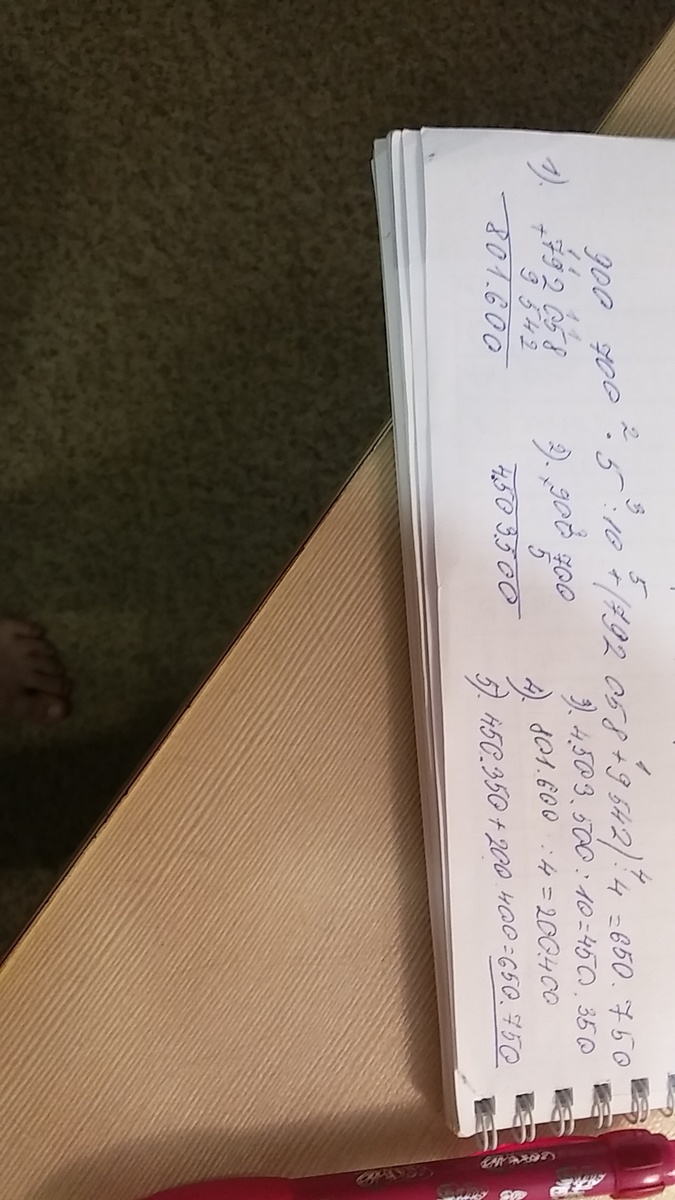 900 700 · 5 : 10 + (792 058 + 9 542) : 4 = 650.750
2 3 5 1 4
1). +792 058
9 542
801.600
2). 900 700
5
4.503.500
3). 4.503.500 : 10 = 450.350
4). 801.600 : 4 = 200.400
5). 450.350 + 200.400 = 650.750